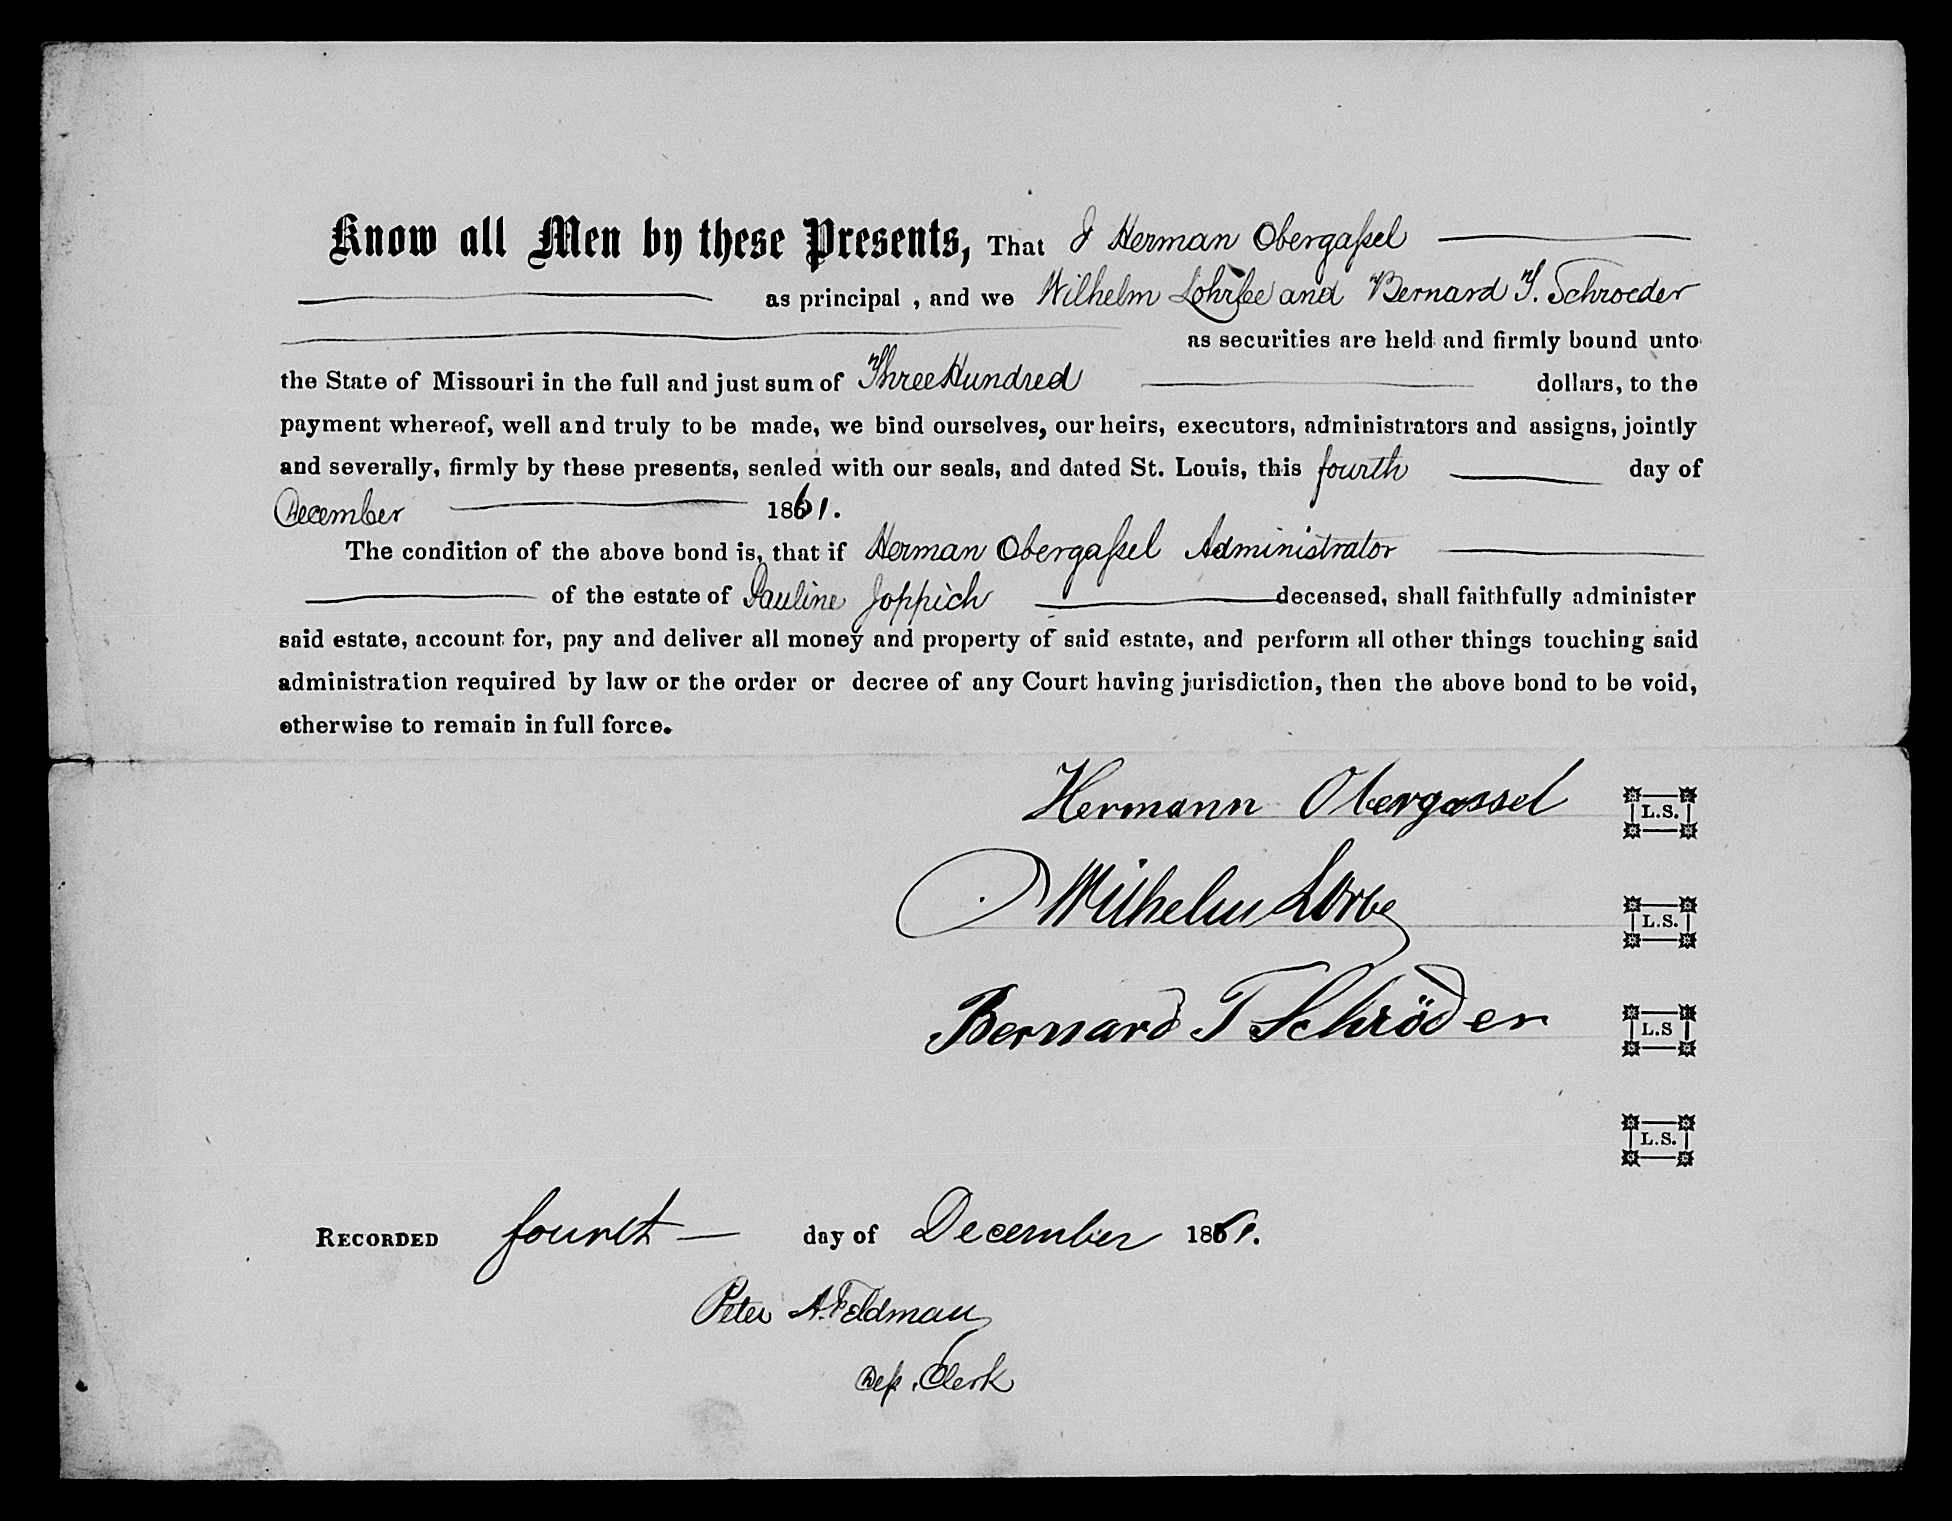 Know all Men by these Presents, That I Herman Obergaſsel
as principal , and we Wilhelm and Bernard T. Schroeder
as securities are held and firmly bound unto
the State of Missouri in the full and just sum of Three Hundred dollars, to the
payment whereof, well and truly to be made, we bind ourselves, our heirs, executors, administrators and assigns, jointly
and severally, firmly by these presents, sealed with our seals, and dated St. Louis, this fourth day of
December 1861.
The condition of the above bond is, that if Herman Obergaſsel Administrator
of the estate of Pauline Joppich deceased, shall faithfully administer
said estate, account for, pay and deliver all money and property of said estate, and perform all other things touching said
administration required by law or the order or decree of any Court having jurisdiction, then the above bond to be void,
otherwise to remain in full force.
Hermann Obergassel L.S.
Wilhelm L.S.
Bernard T Schröder L.S
L.S.
RECORDED fourth day of December 1861.
Peter A. Feldman
Dep. Clerk